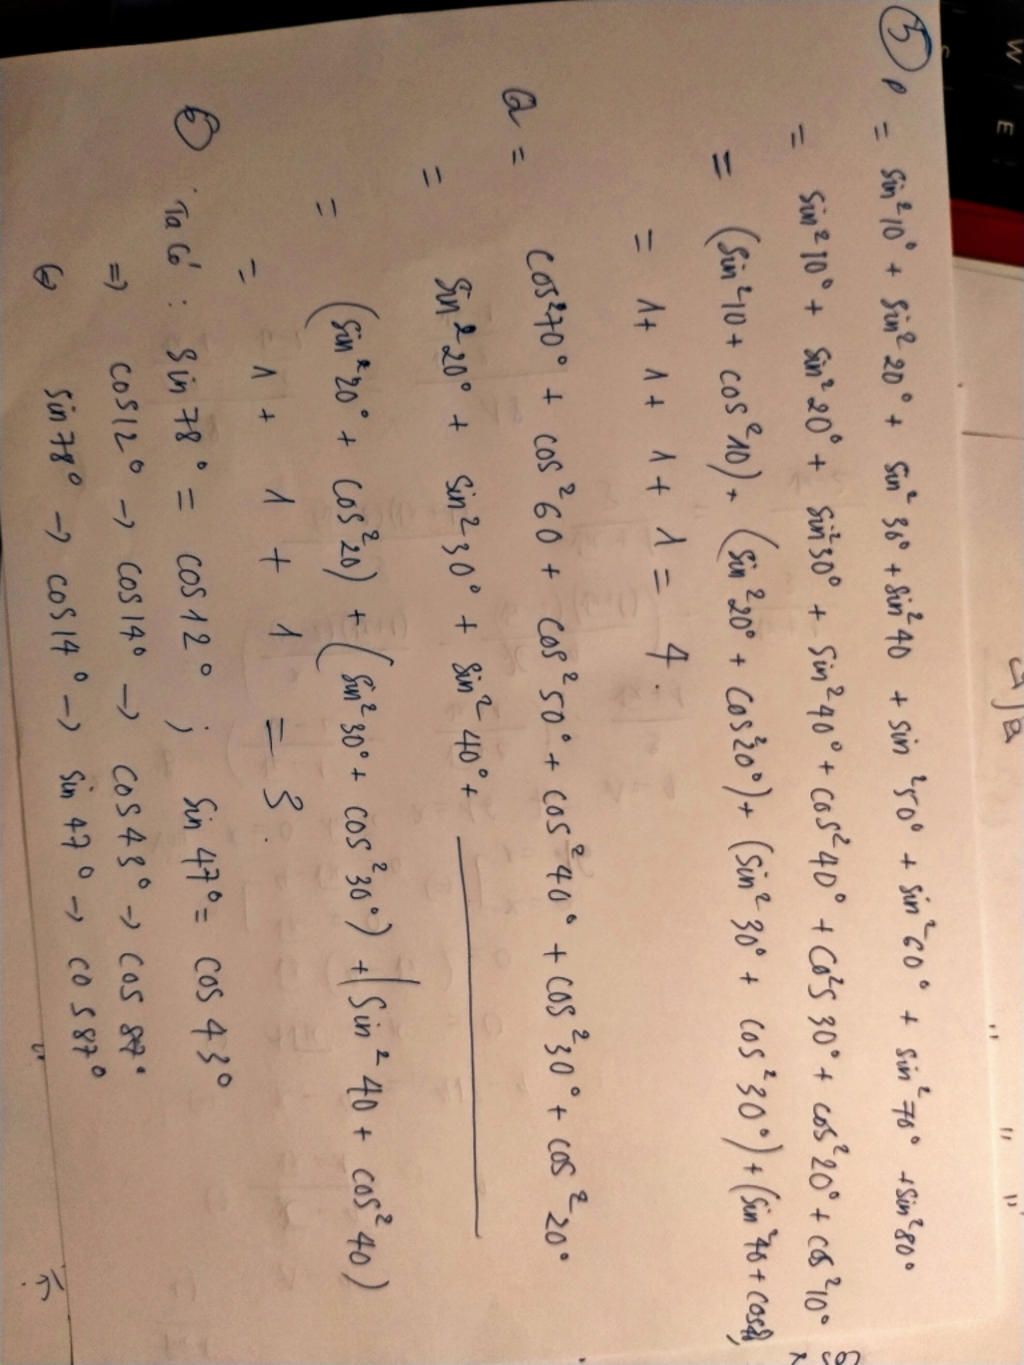 ⑤ P = sin²10° + sin²20° + sin²30° + sin²40 + sin²50° + sin²60° + sin²70° + sin²80°
= sin²10° + sin²20° + sin²30° + sin²40° + cos²40° + cos²30° + cos²20° + cos²10°
= (sin²10 + cos²10) + (sin²20° + cos²20°) + (sin²30° + cos²30°) + (sin²40 + cos²40)
= 1 + 1 + 1 + 1 = 4.
Q = cos²70° + cos²60 + cos²50° + cos²40° + cos²30° + cos²20°
= sin²20° + sin²30° + sin²40° +
= (sin²20° + cos²20) + (sin²30° + cos²30°) + (sin²40 + cos²40)
= 1 + 1 + 1 = 3.
⑥ Ta có : sin78° = cos12° ; sin47° = cos43°
=> cos12° → cos14° → cos43° → cos87°
↔ sin78° → cos14° → sin47° → cos87°
W
E